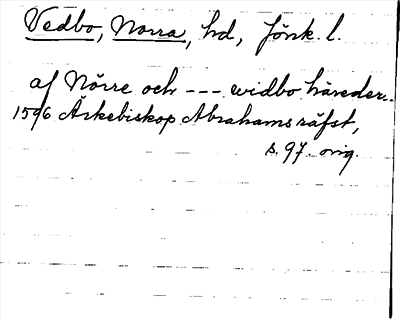 Vedbo, Norra, hd, Jönk. l.
af Nörre och --- widbo häreder.
1596 Ärkebiskop Abrahams räfst,
s. 97. orig.